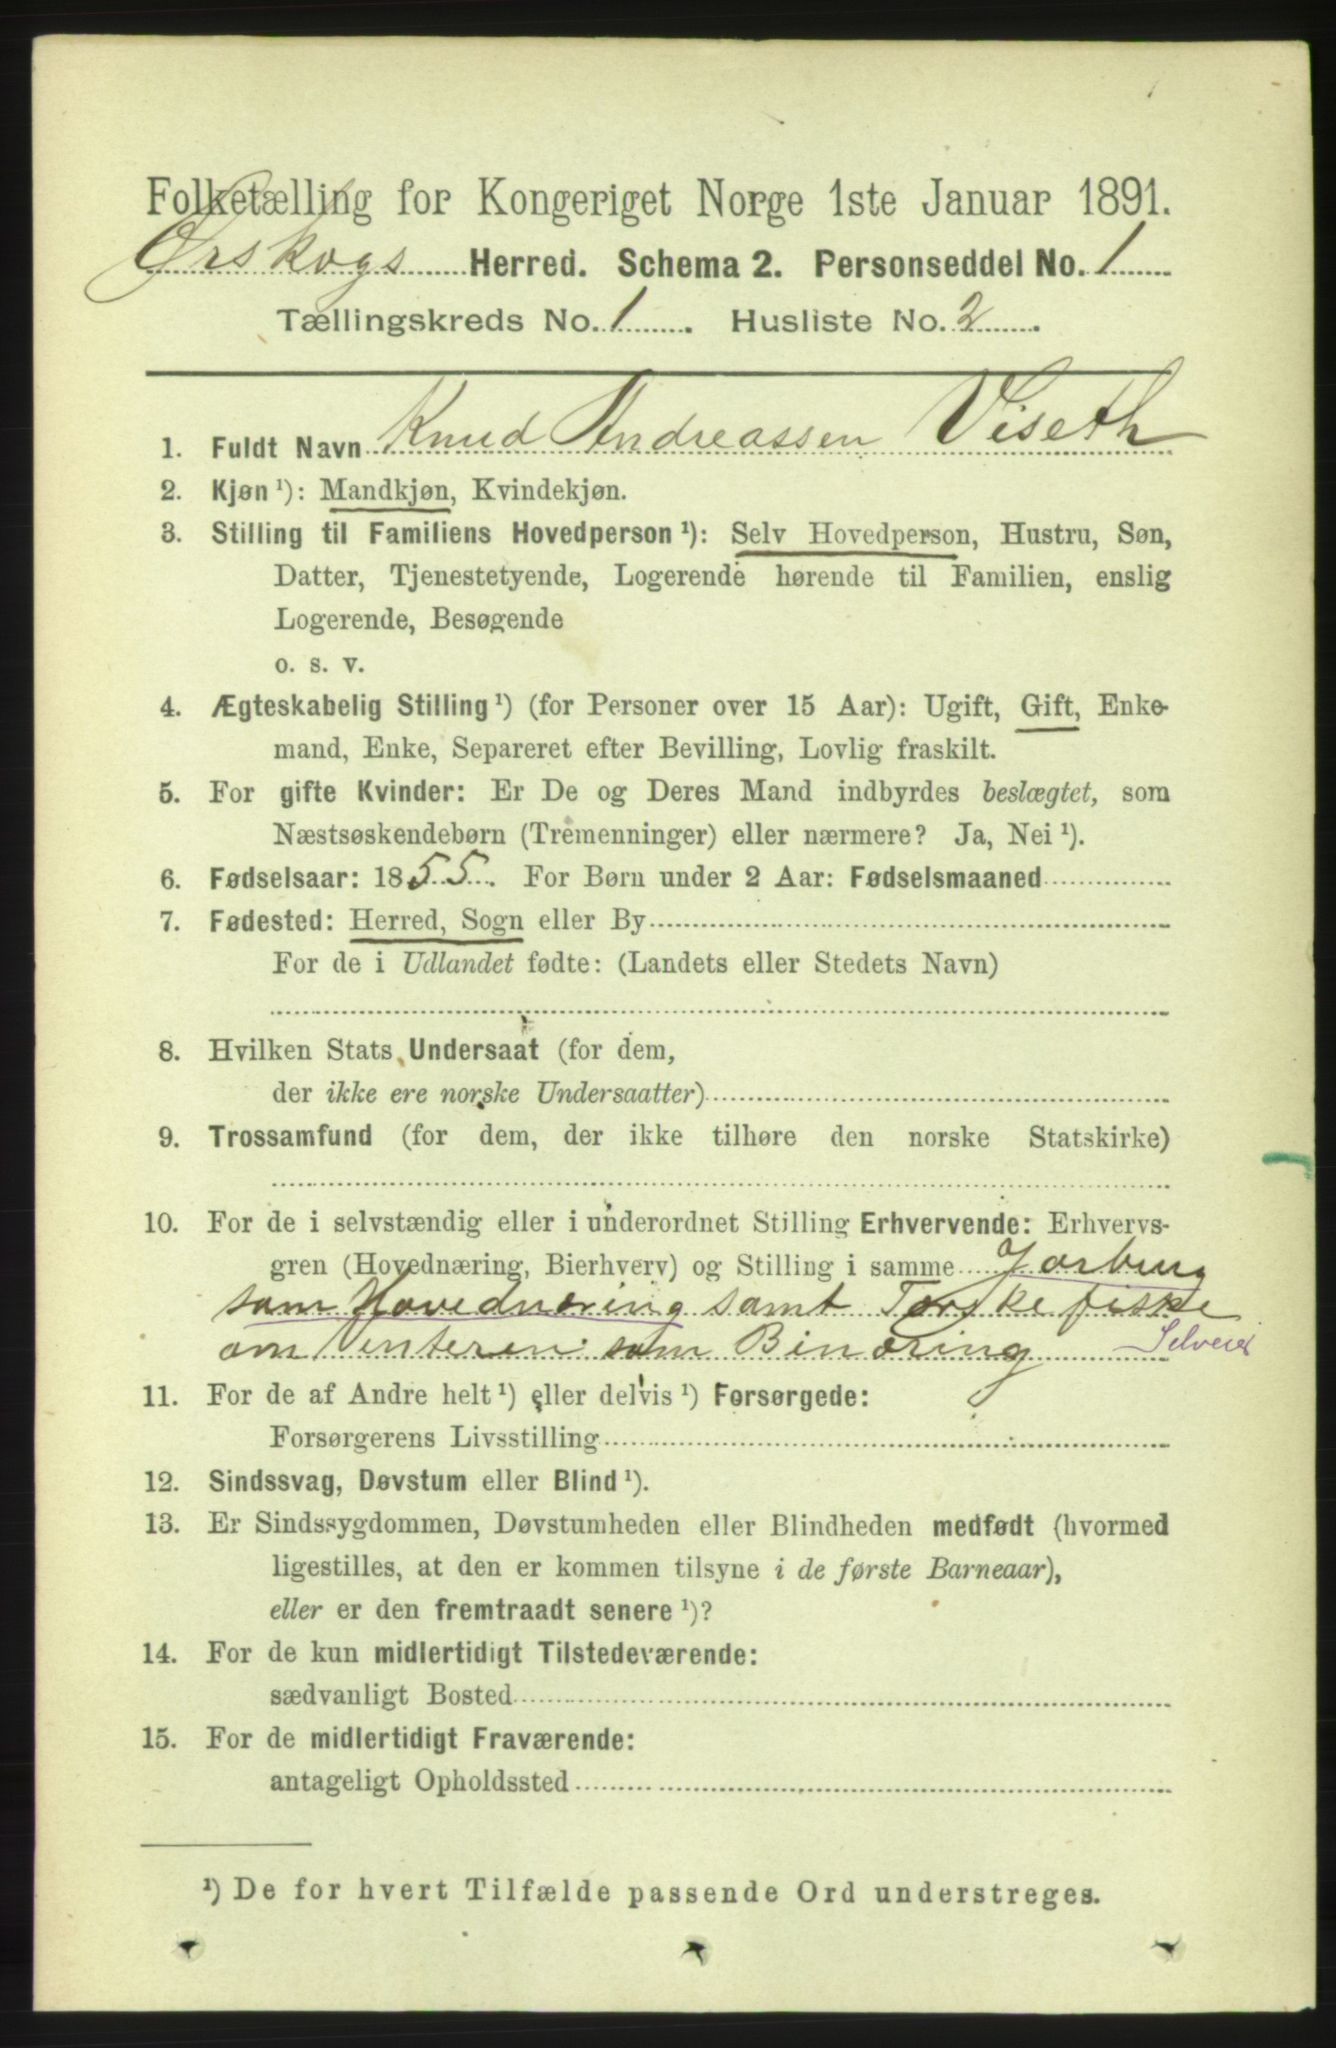 Folketælling for Kongeriget Norge 1ste Januar 1891.
Ørskogs Herred. Schema 2. Personseddel No. 1
Tællingskreds No. 1. Husliste No. 2.
1. Fuldt Navn Knud Andreassen Viseth
2. Kjøn ¹): Mandkjøn, Kvindekjøn.
3. Stilling til Familiens Hovedperson ¹): Selv Hovedperson, Hustru, Søn,
Datter, Tjenestetyende, Logerende hørende til Familien, enslig
Logerende, Besøgende
o. s. v.
4. Ægteskabelig Stilling ¹) (for Personer over 15 Aar): Ugift, Gift, Enke-
mand, Enke, Separeret efter Bevilling, Lovlig fraskilt.
5. For gifte Kvinder: Er De og Deres Mand indbyrdes beslægtet, som
Næstsøskendebørn (Tremenninger) eller nærmere? Ja, Nei ¹).
6. Fødselsaar: 1855. For Børn under 2 Aar: Fødselsmaaned
7. Fødested: Herred, Sogn eller By
For de i Udlandet fødte: (Landets eller Stedets Navn)
8. Hvilken Stats Undersaat (for dem,
der ikke ere norske Undersaatter)
9. Trossamfund (for dem, der ikke tilhøre den norske Statskirke)
10. For de i selvstændig eller i underordnet Stilling Erhvervende: Erhvervs-
gren (Hovednæring, Bierhverv) og Stilling i samme Jorbrug
som Hovednæring samt Torskefiske
om Venteren som Binæring Selveier
11. For de af Andre helt ¹) eller delvis ¹) Forsørgede:
Forsørgerens Livsstilling
12. Sindssvag, Døvstum eller Blind ¹).
13. Er Sindssygdommen, Døvstumheden eller Blindheden medfødt (hvormed
ligestilles, at den er kommen tilsyne i de første Barneaar),
eller er den fremtraadt senere ¹)?
14. For de kun midlertidigt Tilstedeværende:
sædvanligt Bosted
15. For de midlertidigt Fraværende:
antageligt Opholdssted
¹) De for hvert Tilfælde passende Ord understreges.